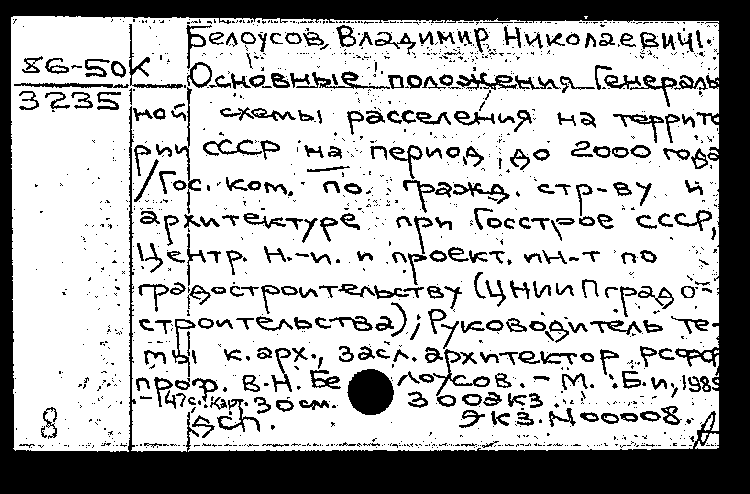 Белоусов, Владимир Николаевич!.
86-50К
3235
Основные положения Генераль
ной схемы расселения на террито
рии СССР на период до 2000 года
/Гос. ком. по гражд. стр-ву и
архитектуре при Госстрое СССР,
Центр. н.-и. и проект. ин-т по
градостроительству (ЦНИИПградо-
строительства); Руководитель те-
мы к. арх., засл. архитектор РСФС
проф. В.Н. Белоусов. - М. : Б.и, 1985
.-147с.: карт. 30см. 300экз.
ДСП. Экз. N00008.
8